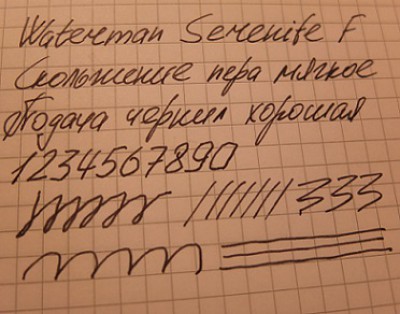 Waterman Serenite F
Скольжение пера мягкое
Подача чернил хорошая
1234567890